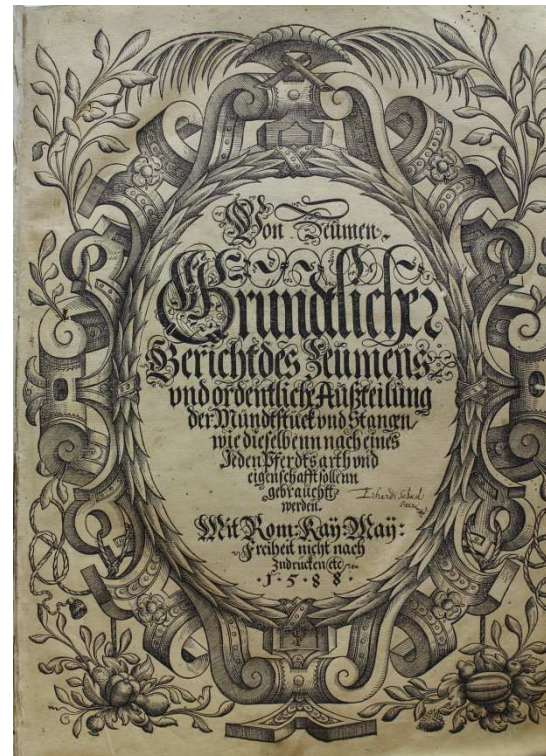 Von Zeümen.
Gründtlicher
Bericht des Zeumens
vnd ordentliche Außteilung
der Mündtstück vnd Stangen
wie dieselbenn nach eines
Jeden Pferdts arth vnd
eigenschafft sollenn
gebrauchtt
werden.
Mit Rom: Kaÿ: Maÿ:
Freiheit nicht nach
zudrucken / etc
·1·5·8·8·